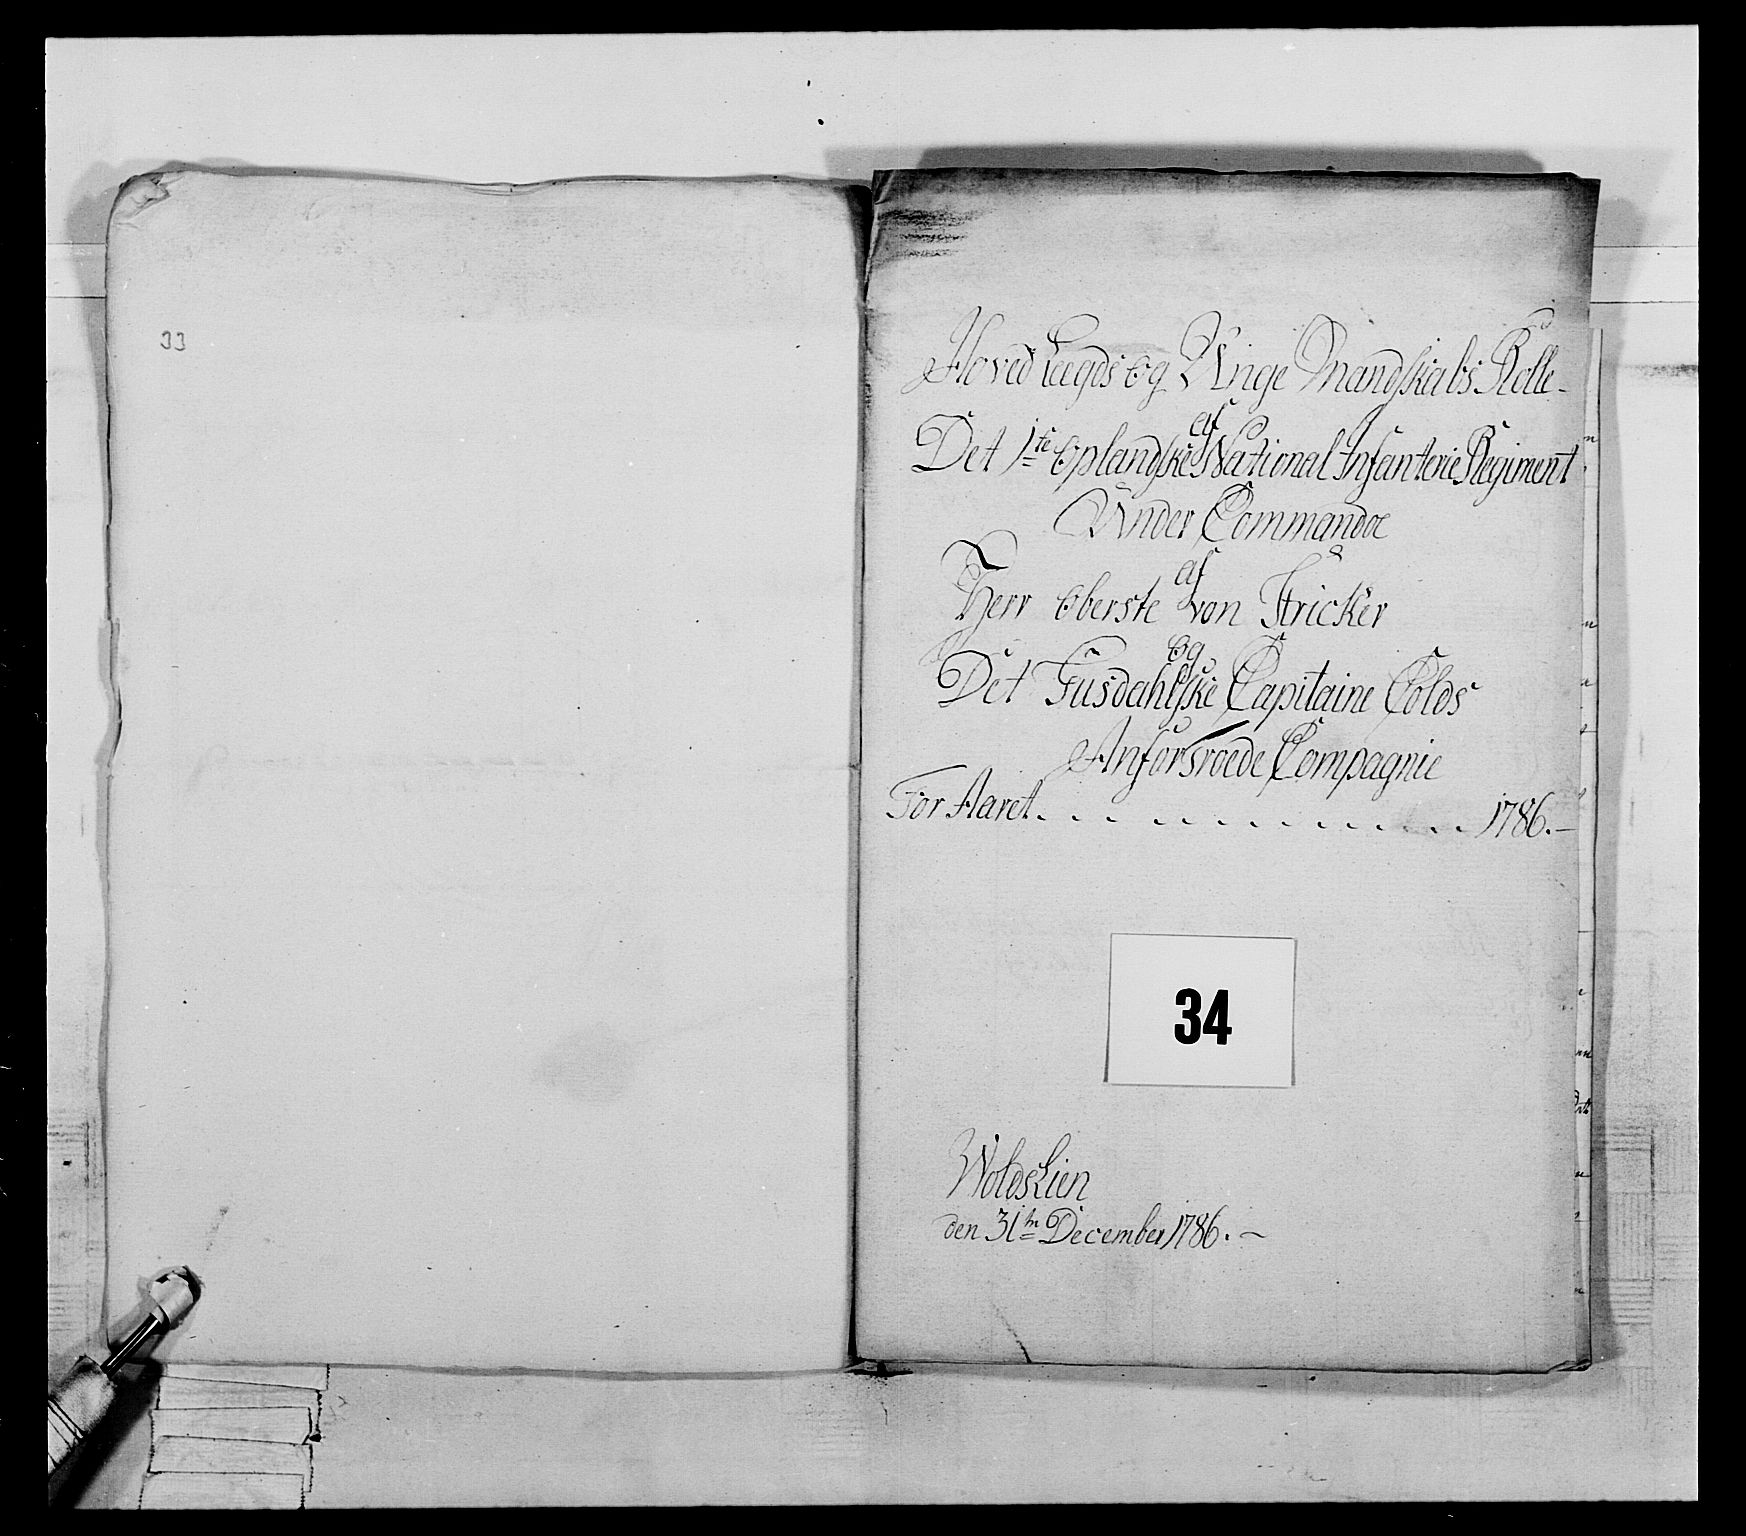 33
Hoved Lægds og Unge Mandskabs Rolle
af
Det 1te Oplandske National Infanterie Regiment
Under Commandoe
af
Herr Oberste von Fricker
og
Det Gusdahlske Capitaine Colds
Anfortroede Compagnie
For Aaret . . . . . . . . . . . 1786. —
34
Woldskien
den 31tn December 1786. —